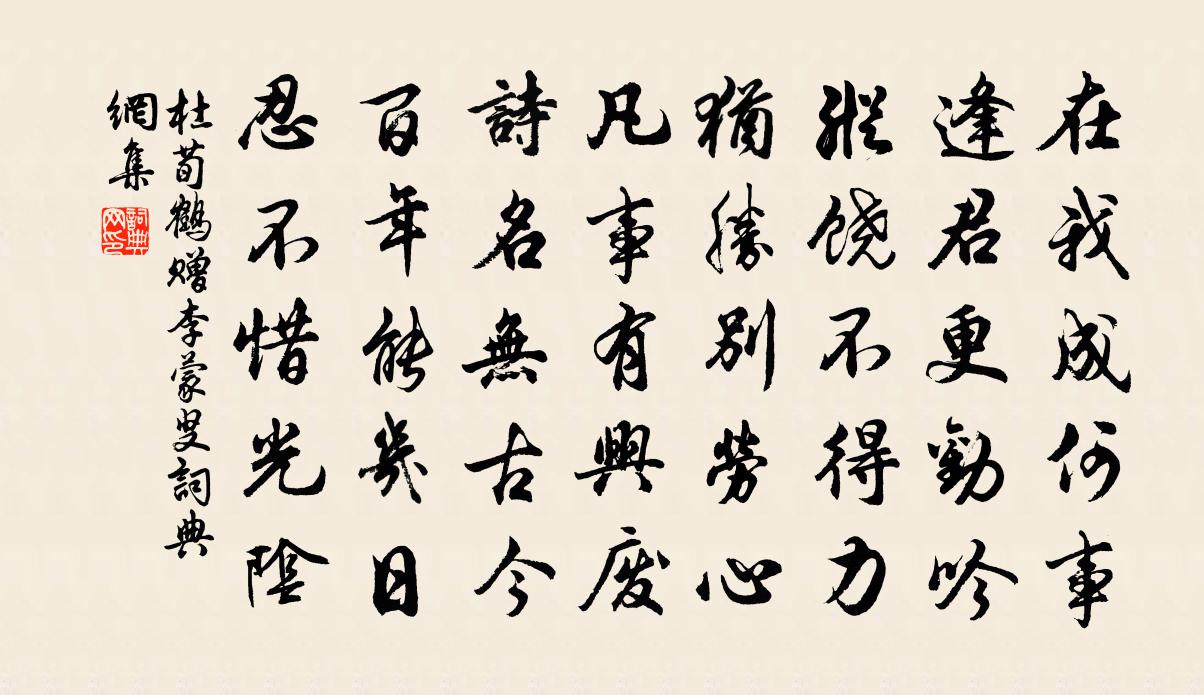 在我成何事
逢君更勸吟
縱饒不得力
猶勝別勞心
凡事有興廢
詩名無古今
百年能幾日
忍不惜光陰
杜荀鶴贈李蒙叟詞典
網集
詞典
网印